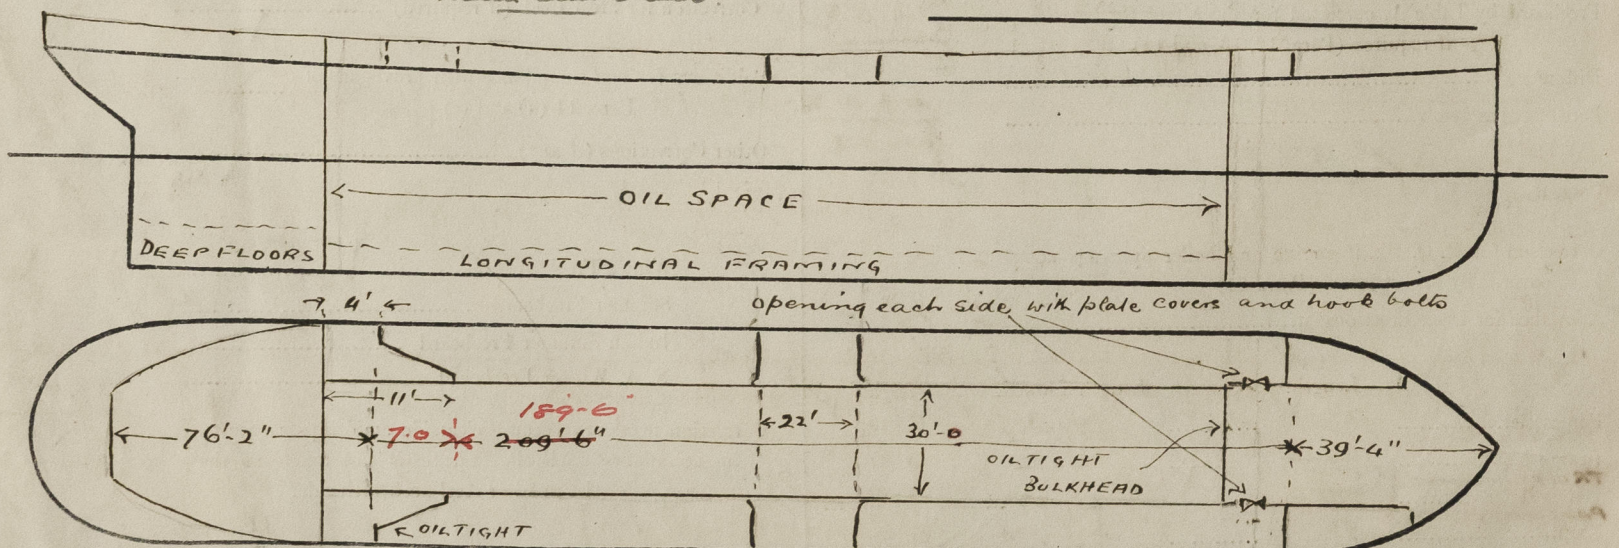 OIL SPACE
DEEP FLOORS
LONGITUDINAL FRAMING
4'
opening each side with plate covers and hook bolts
11'
189-6"
76'-2"
7.0
209'6"
22'
30'-0
39'-4"
OILTIGHT
BULKHEAD
OILTIGHT